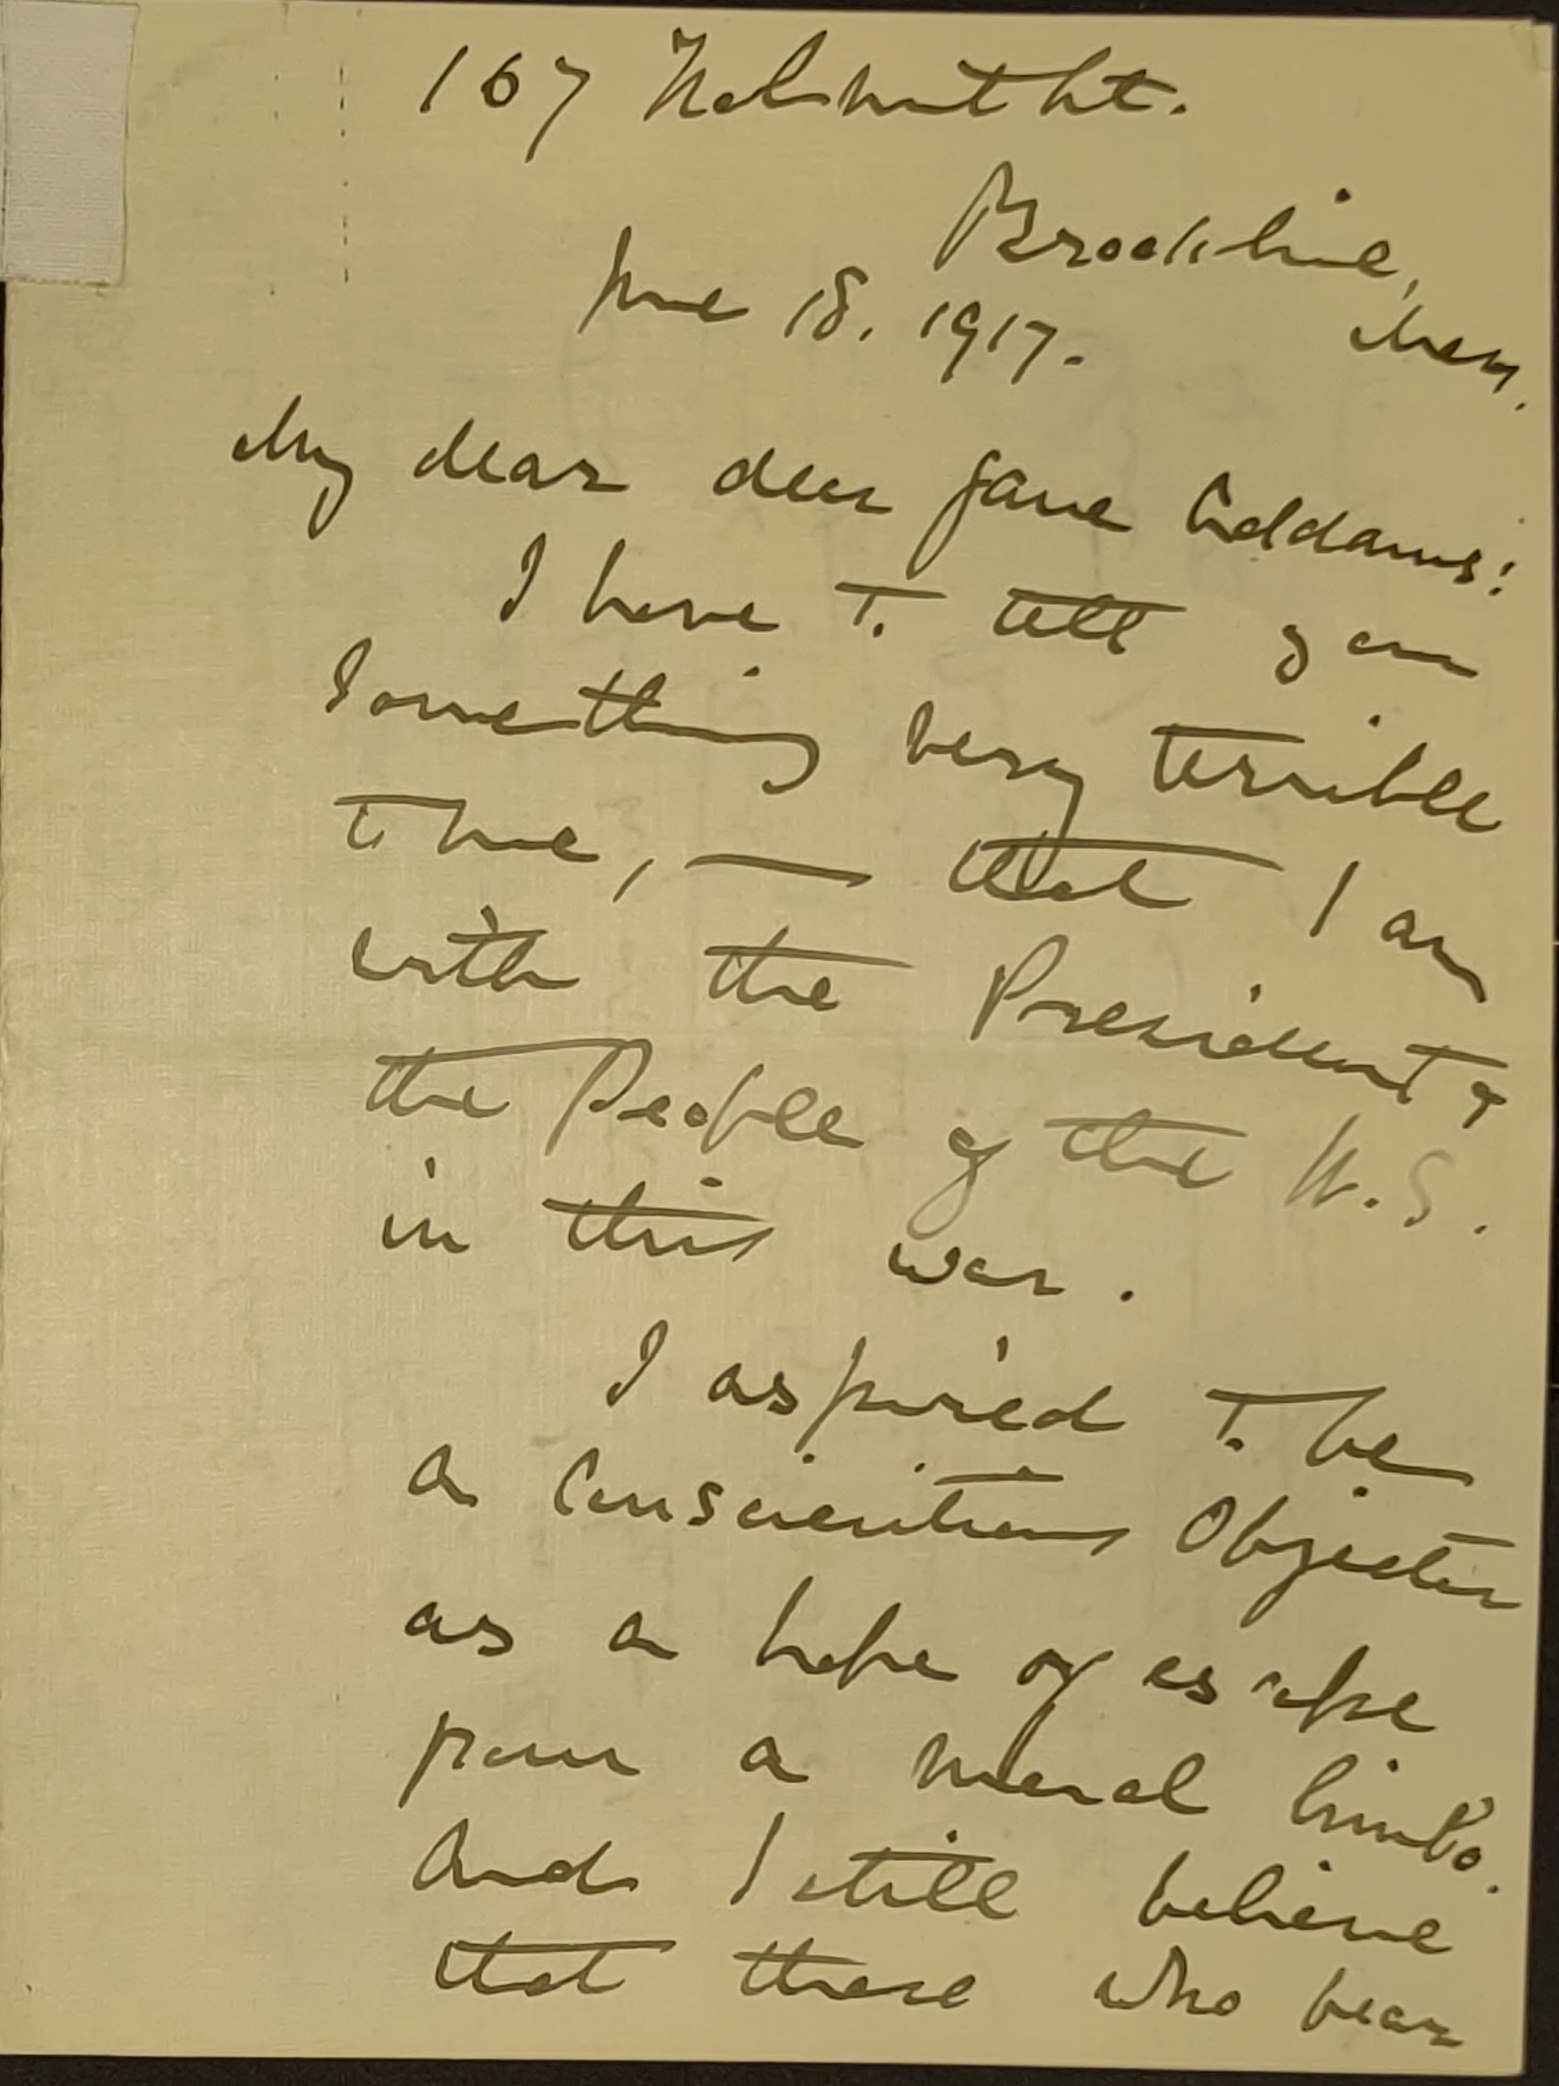 167 Walnut St.
Brookline,
June 18. 1917. Mass.
My dear dear Jane Addams:
I have to tell you
something very terrible
to me, — that I am
with the President &
the People of the U.S.
in this war.
I aspired to be
a Conscientious Objector
as a hope of escape
from a moral limbo.
And I still believe
that those who bear